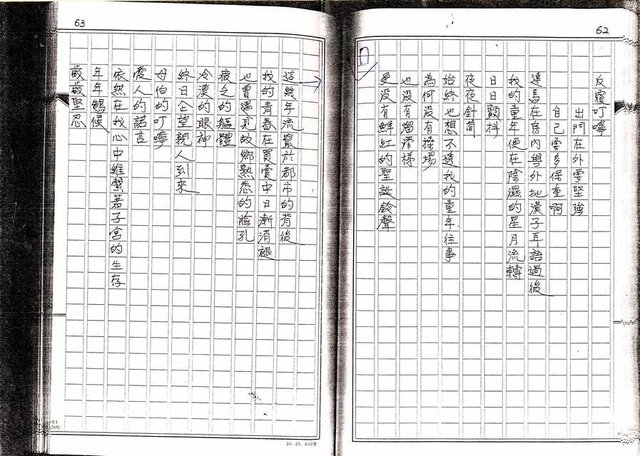 62
反覆叮嚀
出門在外要堅強
自己要多保重啊
達馬在房內與外地漢子耳語過後
我的童年便在陰濕的星月流轉
日日顫抖
夜夜針
始終也想不透我的童年往事
為何沒有操場
也沒有溜滑梯
更沒有鮮紅的聖誕鈴聲
63
這幾年流竄於都市的背後
我的青春在買賣中日漸消褪
也曾遇見故鄉熟悉的臉孔
疲乏的軀體
冷漠的眼神
終日企望親人到來
的叮嚀
愛人的諾言
依然在我心中維繫著子宮的生存
年年
歲歲堅忍